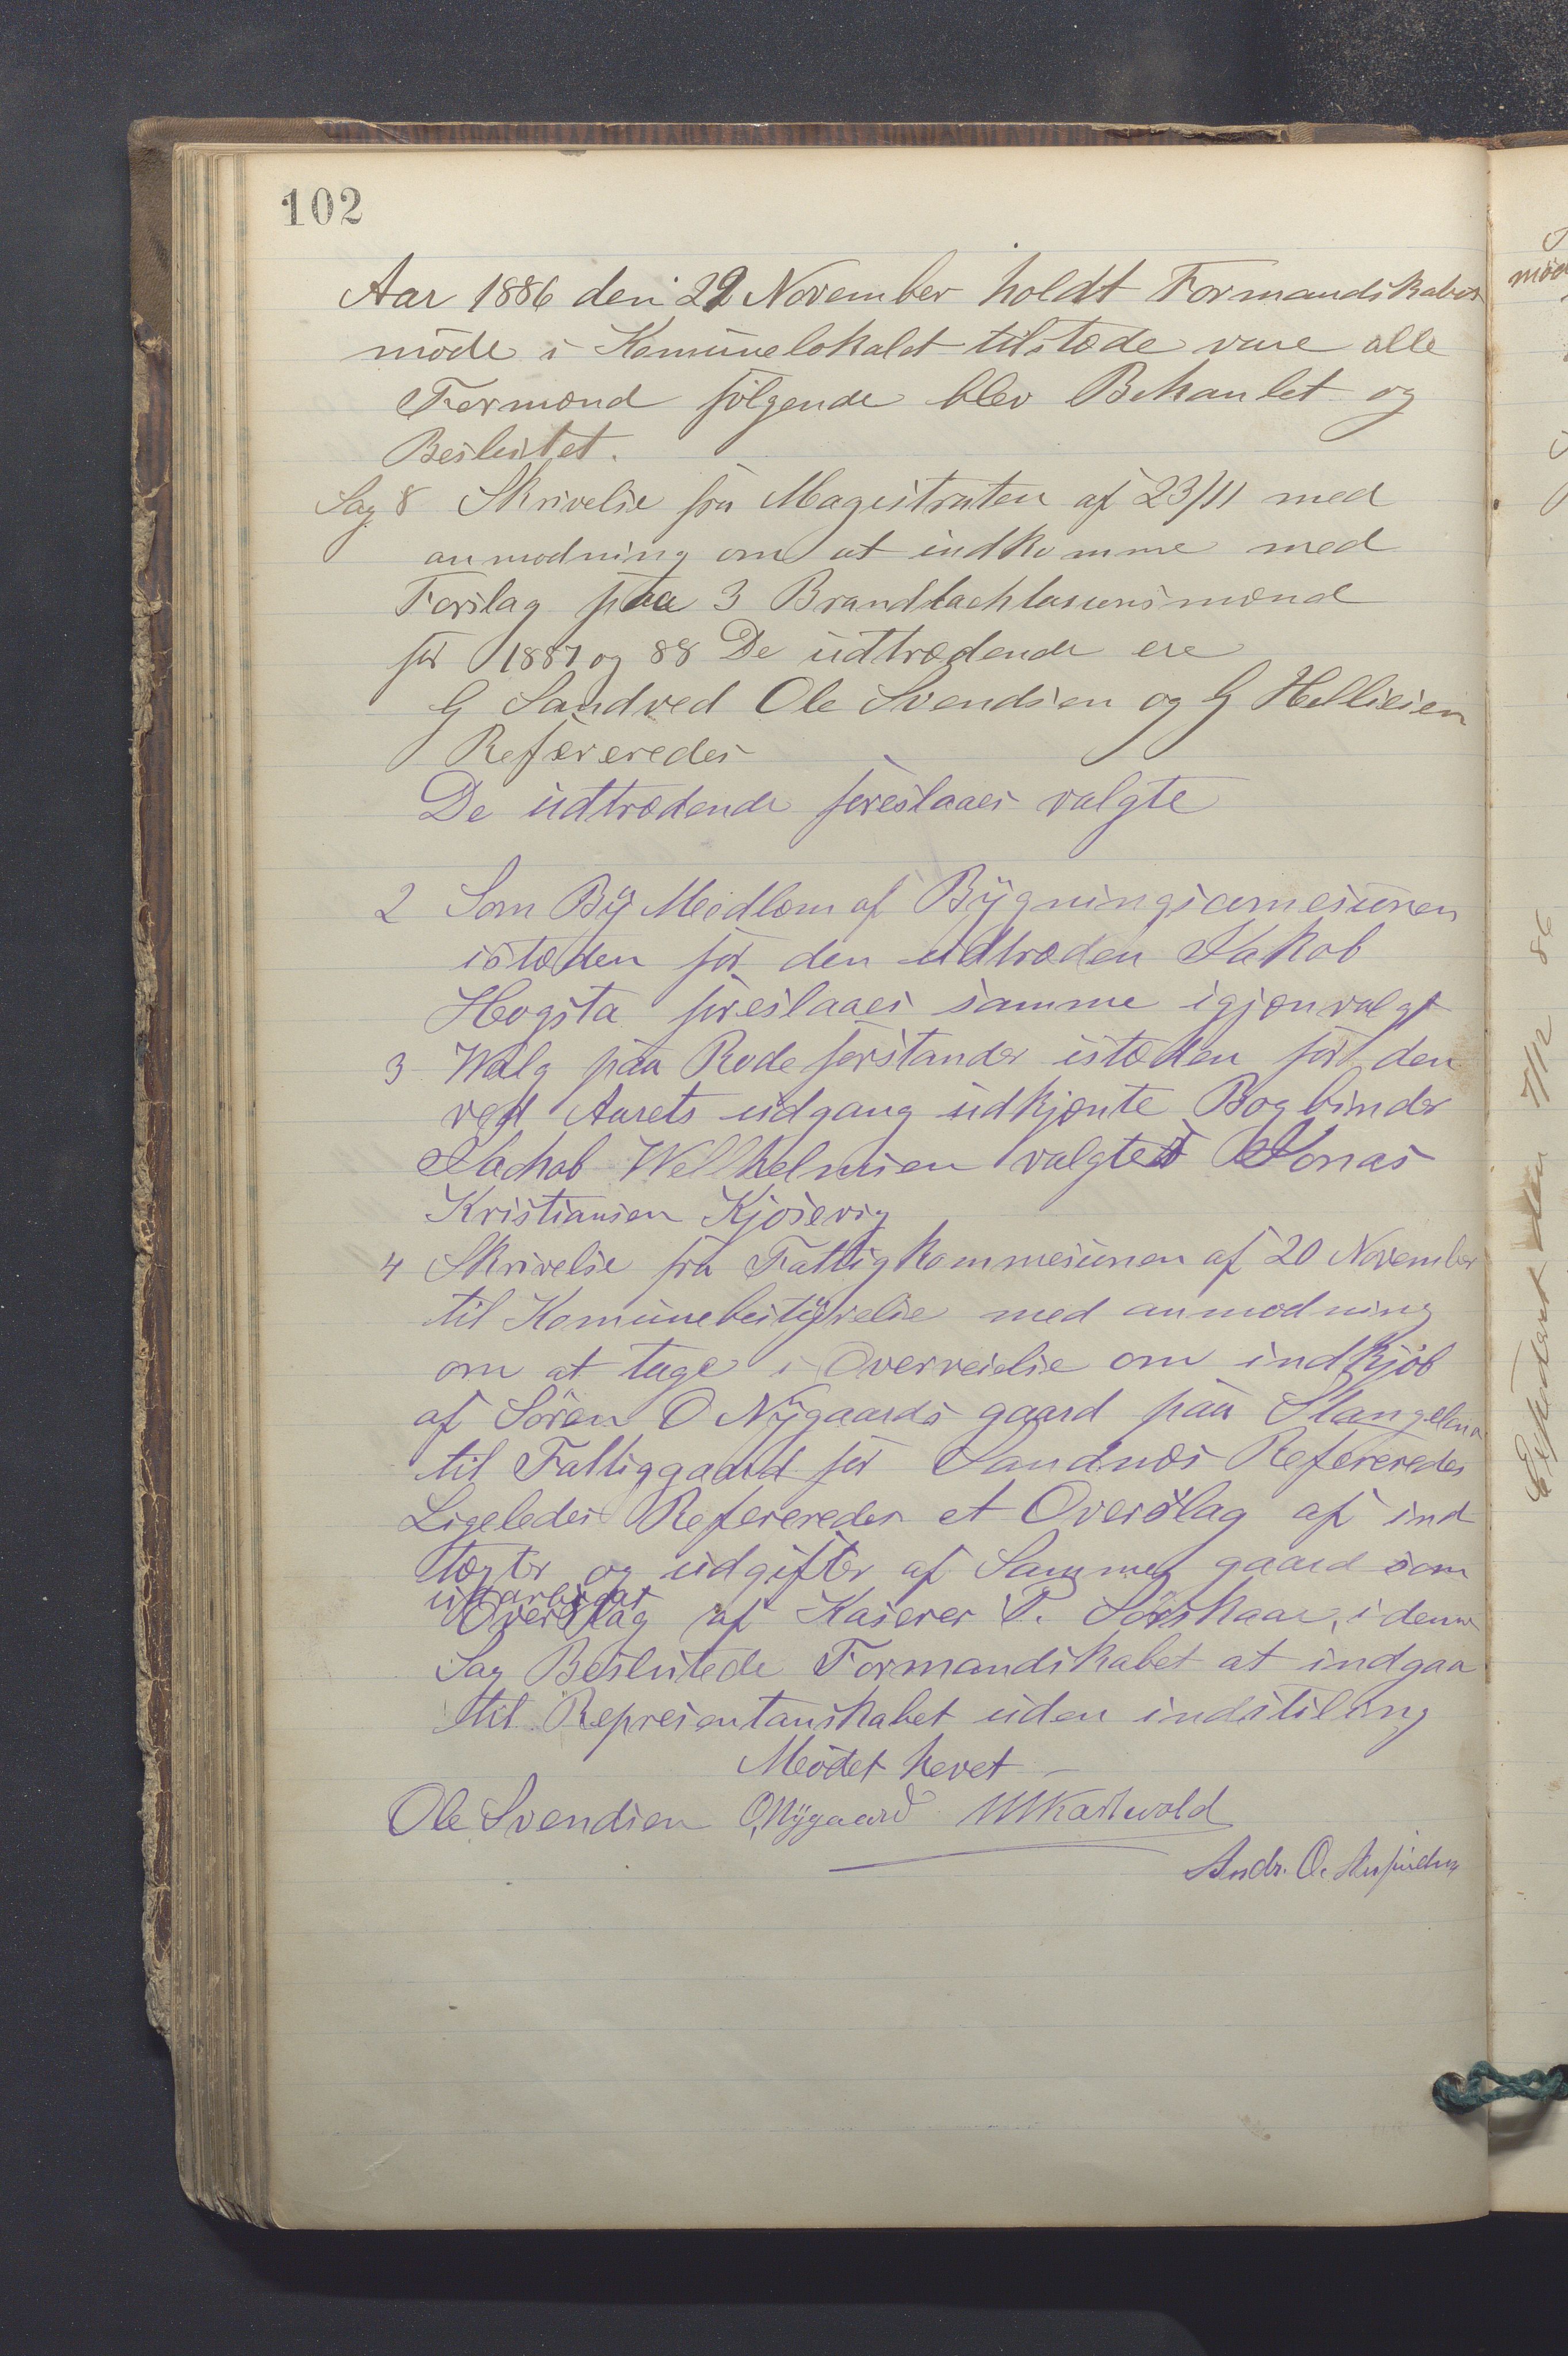 102
Aar 1886 den 29 November holdt Formandskabet
möde i Komünelokalet tilstæde vare alle
Formænd følgende blev Behanlet og
Besluttet.
Sag 8 Skrivelse fra Magistraten af 23/11 med
anmodning om at indkomme med
Forslag paa 3 Brandtachtasionsmænd
for 1887 og 88 De üdtrædende ere
G Sandved Ole Svendsen og G Hellisien
Refereredes
De üdtrædende foreslaaes valgte
2 Som By Medlem af Bygningscomesiunen
istæden for den udtræden Jakob
Hogsta foreslaaes samme igjenvalgt
3 Walg paa Rodeforstander istæden for den
ved Aarets udgang udkjente Bogbinder
Jachob Wellhelmsen valgtes Jonas
Kristiansen Kjosevig
4 Skrivelse fra Fattigkommesiunen af 20 November
til Komünebestyrelse med anmodning
om at tage i Overveielse om indkjöb
af Sören O Nÿgaards gaard paa Stangelan
til Fattiggaard for Sandnæs Refereredes
Ligeledes Refereredes et Overslag af ind
tægter og udgifter af Samme gaard som
udarbeidet
Overslag af Kaserer P. Sörskaar, i denne
Sag Beslutede Formandskabet at indgaa
til Representanskabet uden indstiling
Meödet hevet
Ole Svendsen O, Nÿgaard Karlwold
Andr. O.
möde
Expedert den 7/12 86